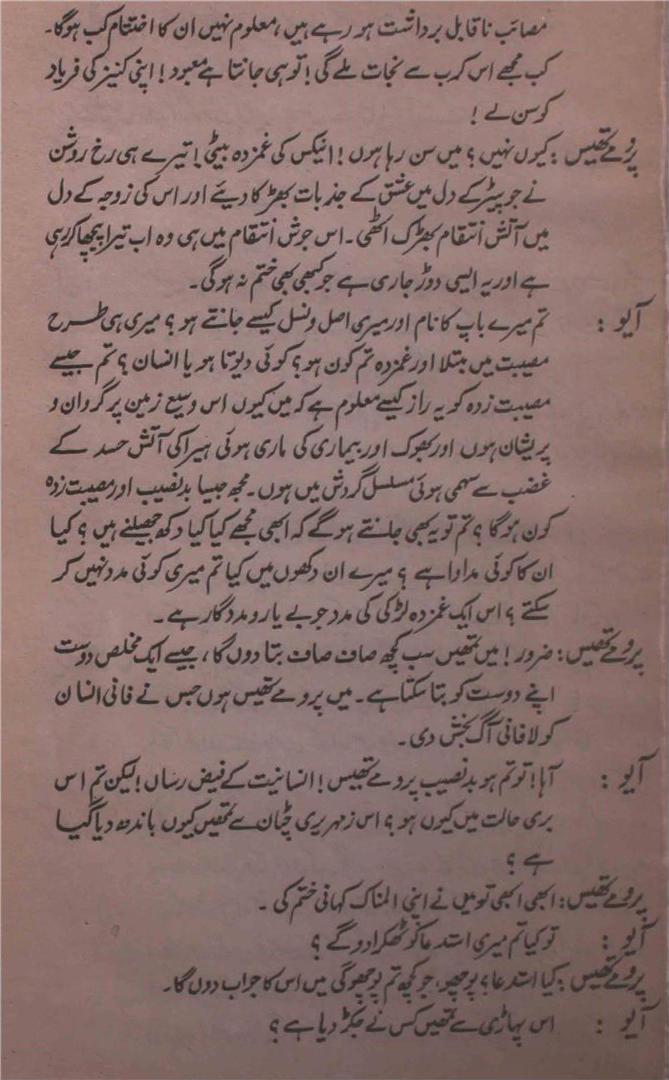 مصائب ناقابل برداشت ہو رہے ہیں، معلوم نہیں ان کا اختتام کب ہوگا۔
کب مجھے اس کرب سے نجات ملے گی! تو ہی جانتا ہے معبود! اپنی کنیز کی فریاد
کو سن لے!
پرومے تھیس : کیوں نہیں؟ میں سن رہا ہوں! انیکس کی غمزدہ بیٹی! تیرے ہی رخ روشن
نے جوپیٹر کے دل میں عشق کے جذبات بھڑکا دیئے اور اس کی زوجہ کے دل
میں آتش انتقام بھڑک اٹھی۔ اس جوش انتقام میں ہی وہ اب تیرا پیچھا کر رہی
ہے اور یہ ایسی دوڑ جاری ہے جو کبھی بھی ختم نہ ہوگی۔
آیو : تم میرے باپ کا نام اور میری اصل و نسل کیسے جانتے ہو؟ میری ہی طرح
مصیبت میں مبتلا اور غمزدہ تم کون ہو؟ کوئی دیوتا ہو یا انسان؟ تم جیسے
مصیبت زدہ کو یہ راز کیسے معلوم ہے کہ میں کیوں اس وسیع زمین پر گرداں و
پریشان ہوں اور بھوک اور بیماری کی ماری ہوئی ہیرا کی آتش حسد کے
غضب سے سہمی ہوئی مسلسل گردش میں ہوں۔ مجھ جیسا بد نصیب اور مصیبت زدہ
کون ہوگا؟ تم تو یہ بھی جانتے ہوگے کہ ابھی مجھے کیا کیا دکھ جھیلنے ہیں؟ کیا
ان کا کوئی مداوا ہے؟ میرے ان دکھوں میں کیا تم میری کوئی مدد نہیں کر
سکتے؟ اس ایک غمزدہ لڑکی کی مدد جو بے یار و مددگار ہے۔
پرومے تھیس : ضرور! میں تمھیں سب کچھ صاف صاف بتا دوں گا، جیسے ایک مخلص دوست
اپنے دوست کو بتا سکتا ہے۔ میں پرومے تھیس ہوں جس نے فانی انسان
کو لافانی آگ بخش دی۔
آیو : آہا! تو تم ہو بد نصیب پرومے تھیس! انسانیت کے فیض رساں! لیکن تم اس
بری حالت میں کیوں ہو؟ اس زمہریری چٹان سے تمھیں کیوں باندھ دیا گیا
ہے؟
پرومے تھیس : ابھی ابھی تو میں نے اپنی المناک کہانی ختم کی۔
آیو : تو کیا تم میری استدعا کو ٹھکرا دو گے؟
پرومے تھیس : کیا استدعا؟ پوچھو، جو کچھ تم پوچھوگی میں اس کا جواب دوں گا۔
آیو : اس پہاڑی سے تمھیں کس نے جکڑ دیا ہے؟